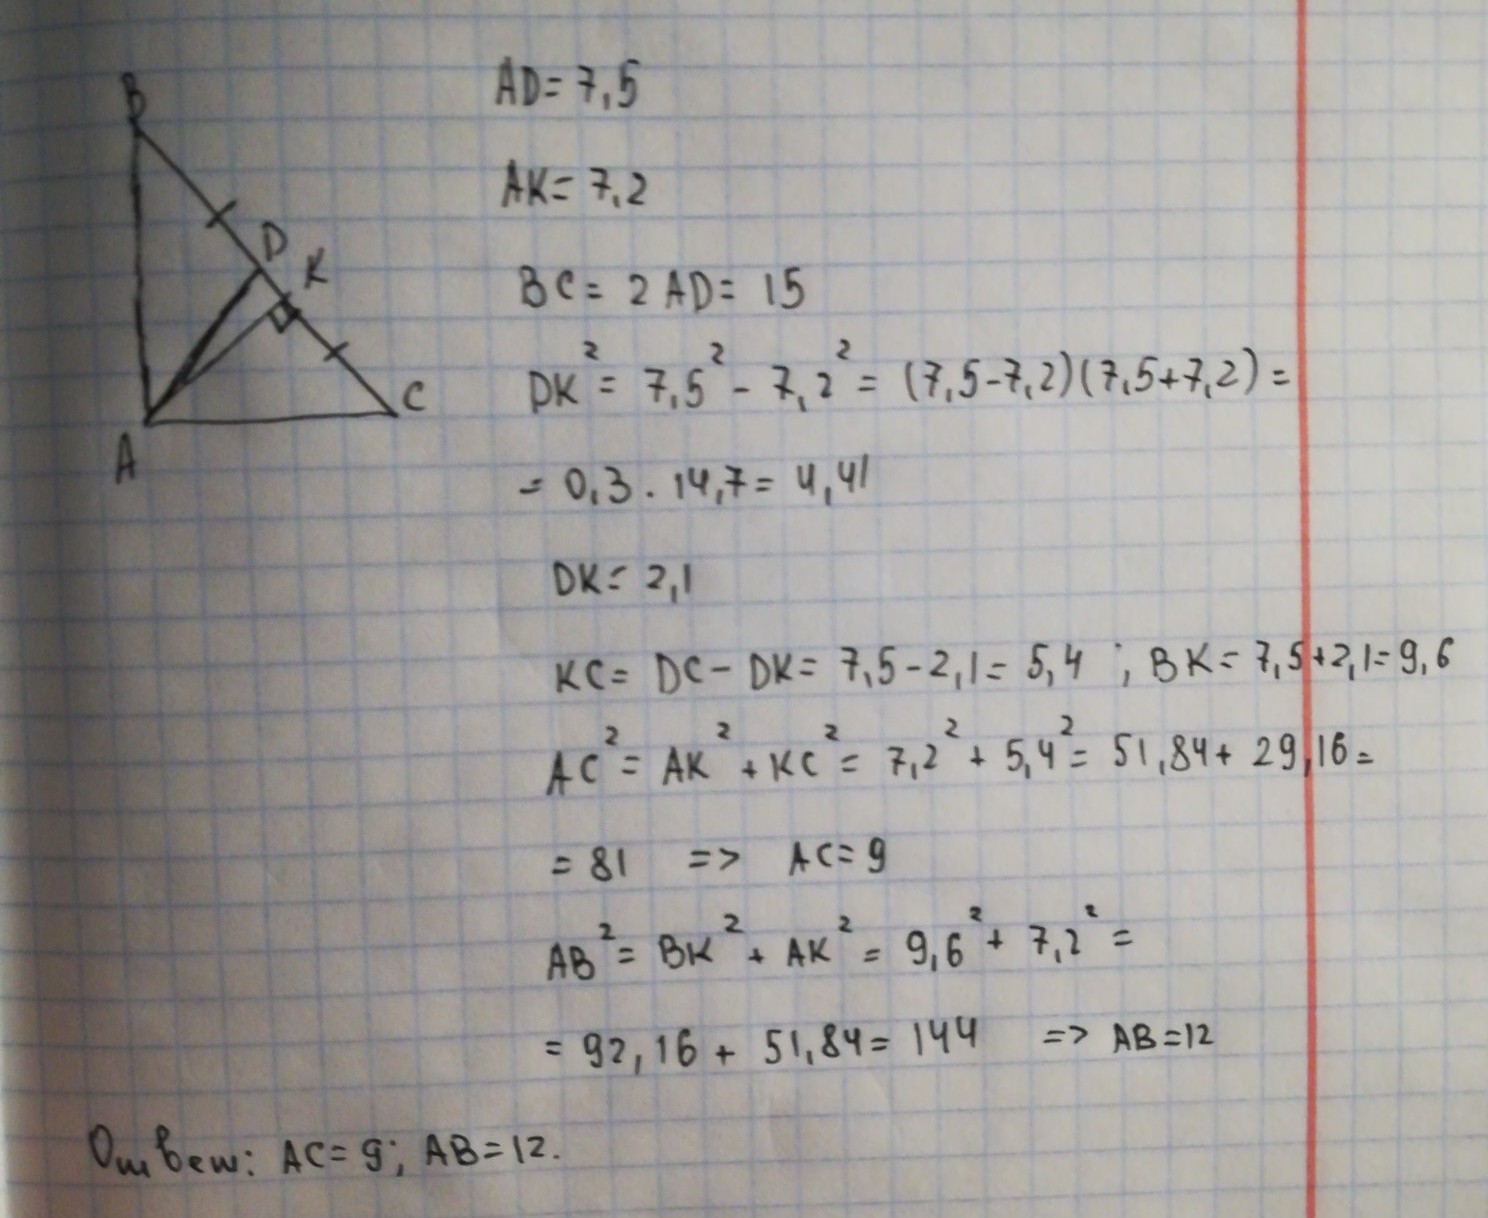 B
D
K
C
A
AD = 7,5
AK = 7,2
BC = 2 AD = 15
DK² = 7,5² - 7,2² = (7,5-7,2)(7,5+7,2) =
= 0,3 · 14,7 = 4,41
DK = 2,1
KC = DC - DK = 7,5 - 2,1 = 5,4 ; BK = 7,5+2,1=9,6
AC² = AK² + KC² = 7,2² + 5,4² = 51,84 + 29,16 =
= 81 => AC = 9
AB² = BK² + AK² = 9,6² + 7,2² =
= 92,16 + 51,84 = 144 => AB = 12
Ответ: AC = 9; AB = 12.